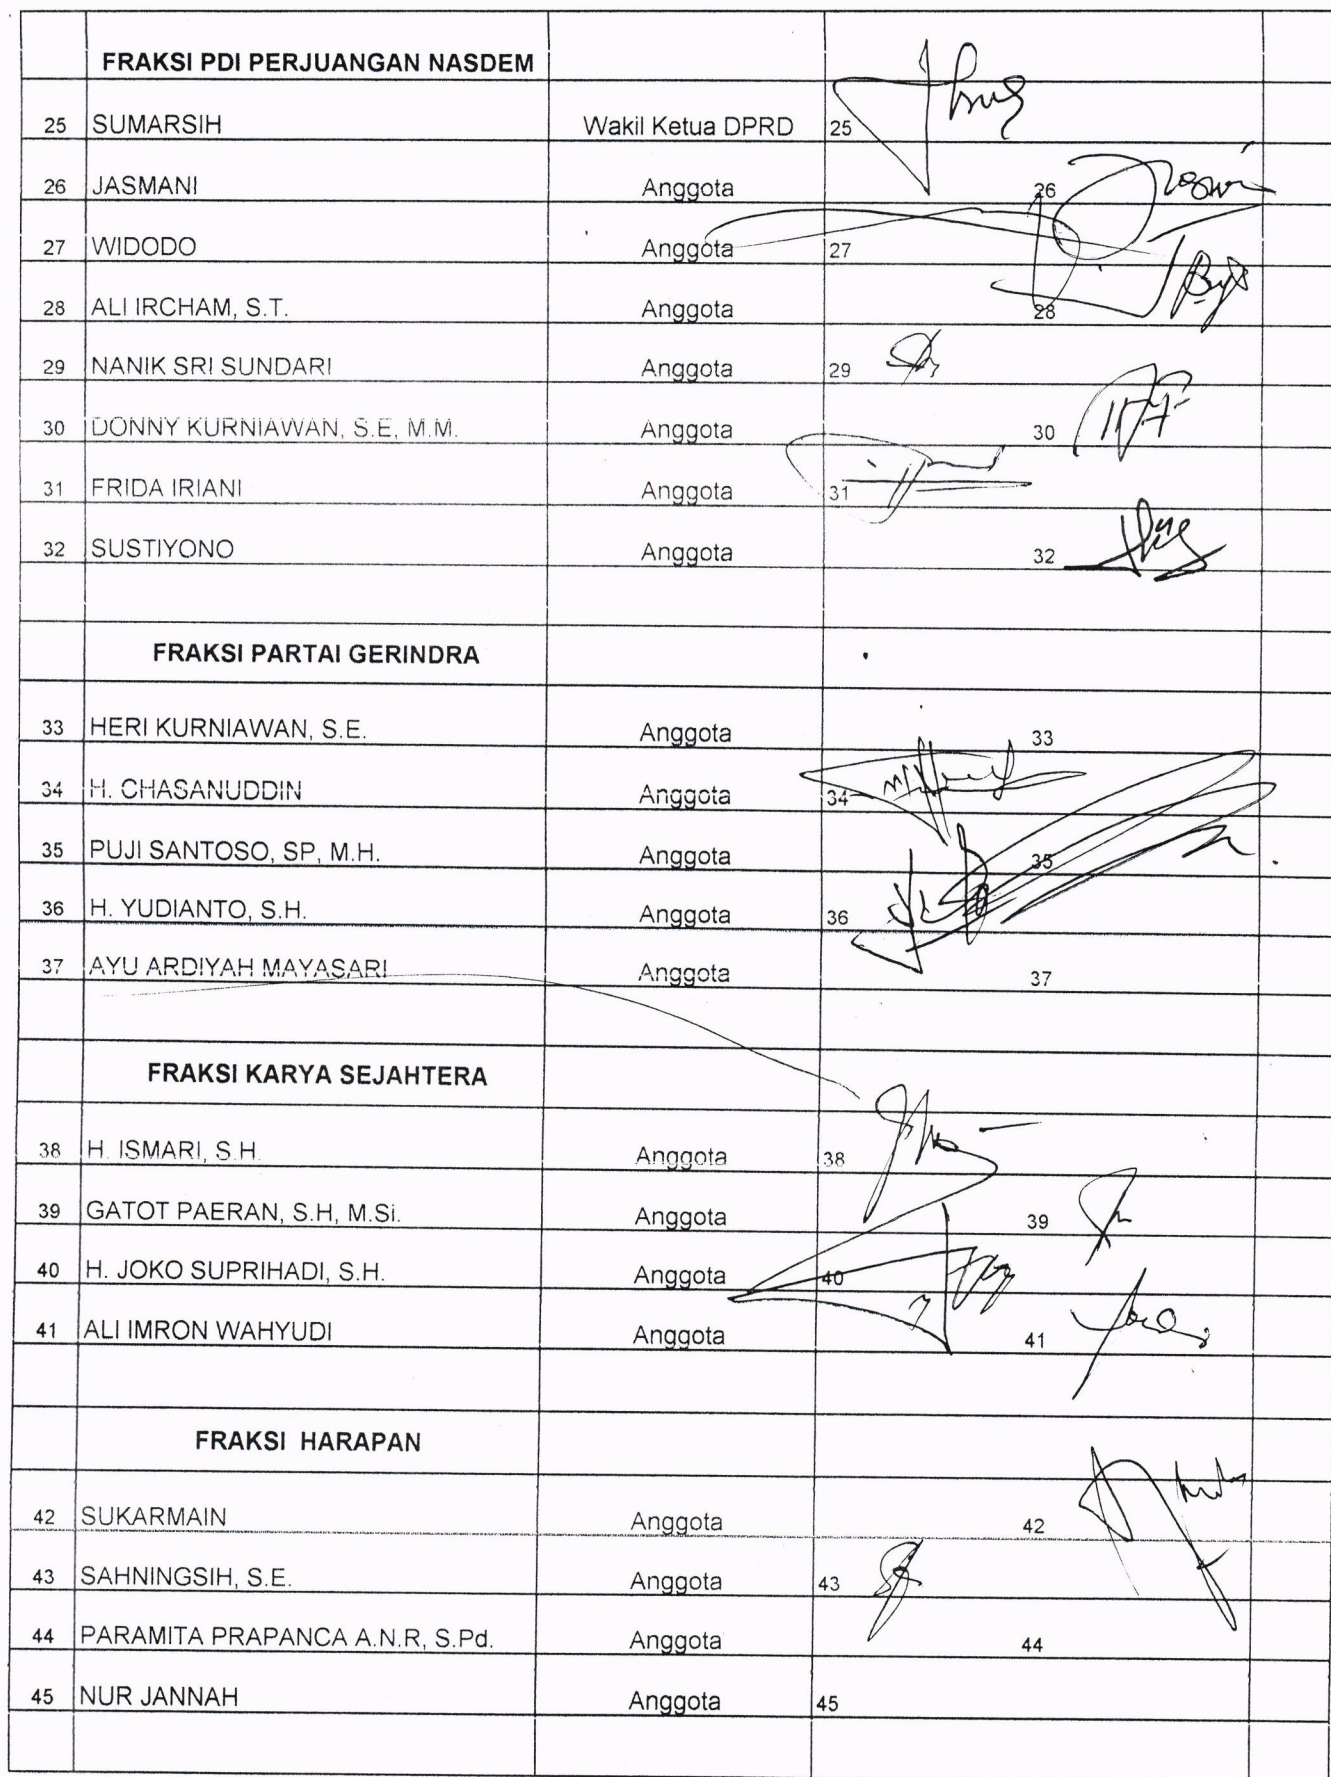 FRAKSI PDI PERJUANGAN NASDEM
25 SUMARSIH Wakil Ketua DPRD 25
26 JASMANI Anggota 26
27 WIDODO Anggota 27
28 ALI IRCHAM, S.T. Anggota 28
29 NANIK SRI SUNDARI Anggota 29
30 DONNY KURNIAWAN, S.E, M.M. Anggota 30
31 FRIDA IRIANI Anggota 31
32 SUSTIYONO Anggota 32
FRAKSI PARTAI GERINDRA
33 HERI KURNIAWAN, S.E. Anggota 33
34 H. CHASANUDDIN Anggota 34
35 PUJI SANTOSO, SP, M.H. Anggota 35
36 H. YUDIANTO, S.H. Anggota 36
37 AYU ARDIYAH MAYASARI Anggota 37
FRAKSI KARYA SEJAHTERA
38 H. ISMARI, S.H. Anggota 38
39 GATOT PAERAN, S.H, M.Si. Anggota 39
40 H. JOKO SUPRIHADI, S.H. Anggota 40
41 ALI IMRON WAHYUDI Anggota 41
FRAKSI HARAPAN
42 SUKARMAIN Anggota 42
43 SAHNINGSIH, S.E. Anggota 43
44 PARAMITA PRAPANCA A.N.R, S.Pd. Anggota 44
45 NUR JANNAH Anggota 45